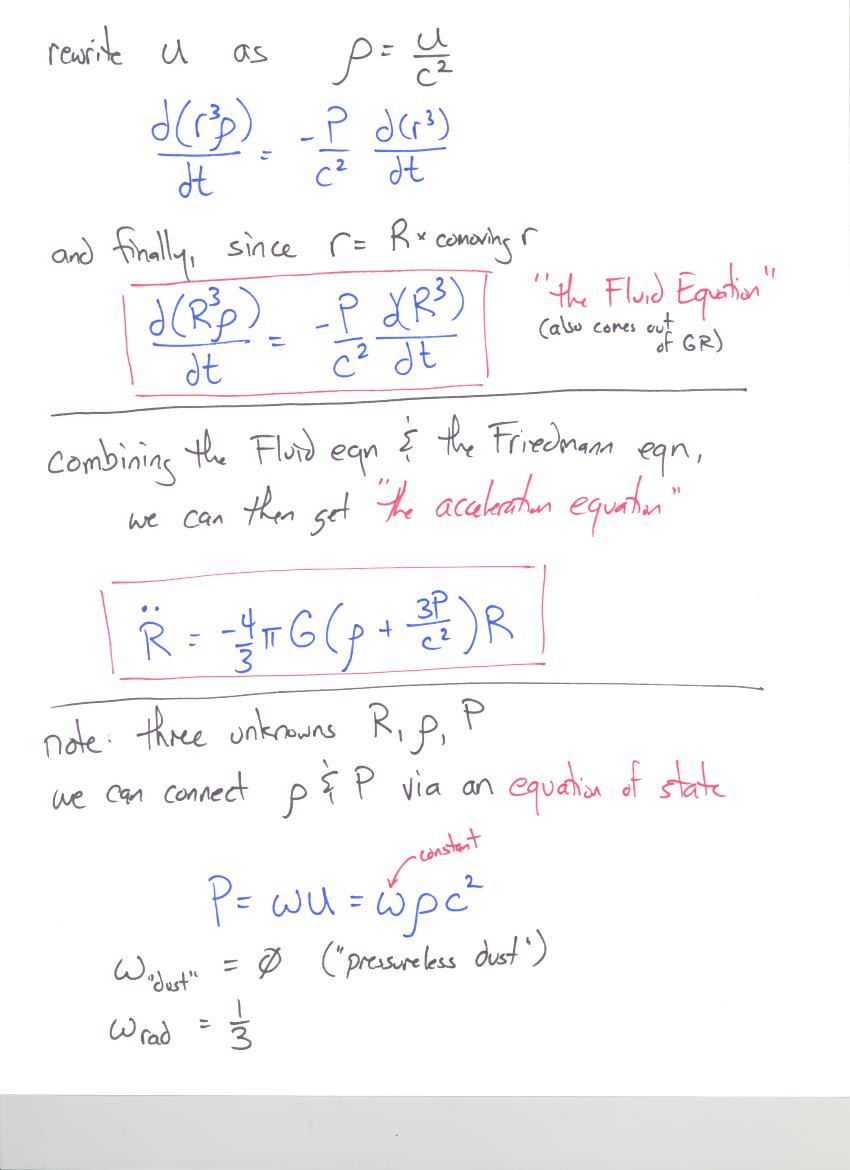 rewrite u as ρ = u/c²
d(r³ρ)/dt = -P/c² d(r³)/dt
and finally, since r = R × comoving r
d(R³ρ)/dt = -P/c² d(R³)/dt
"the Fluid Equation"
(also comes out
of GR)
Combining the Fluid eqn & the Friedmann eqn,
we can then get "the acceleration equation"
R̈ = -4/3 π G (ρ + 3P/c²) R
note: three unknowns R, ρ, P
we can connect ρ & P via an equation of state
constant
P = ωu = ωρc²
ω"dust" = ∅ ("pressureless dust")
ωrad = 1/3